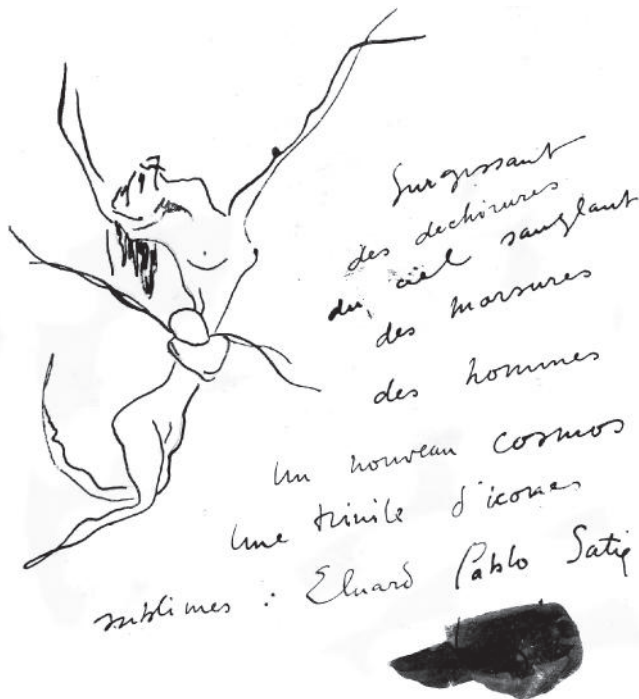 Surgissant
des dechirures
du ciel sanglant
des morsures
des hommes
Un nouveau cosmos
Une trinite d'icones
sublimes : Eluard Pablo Satie